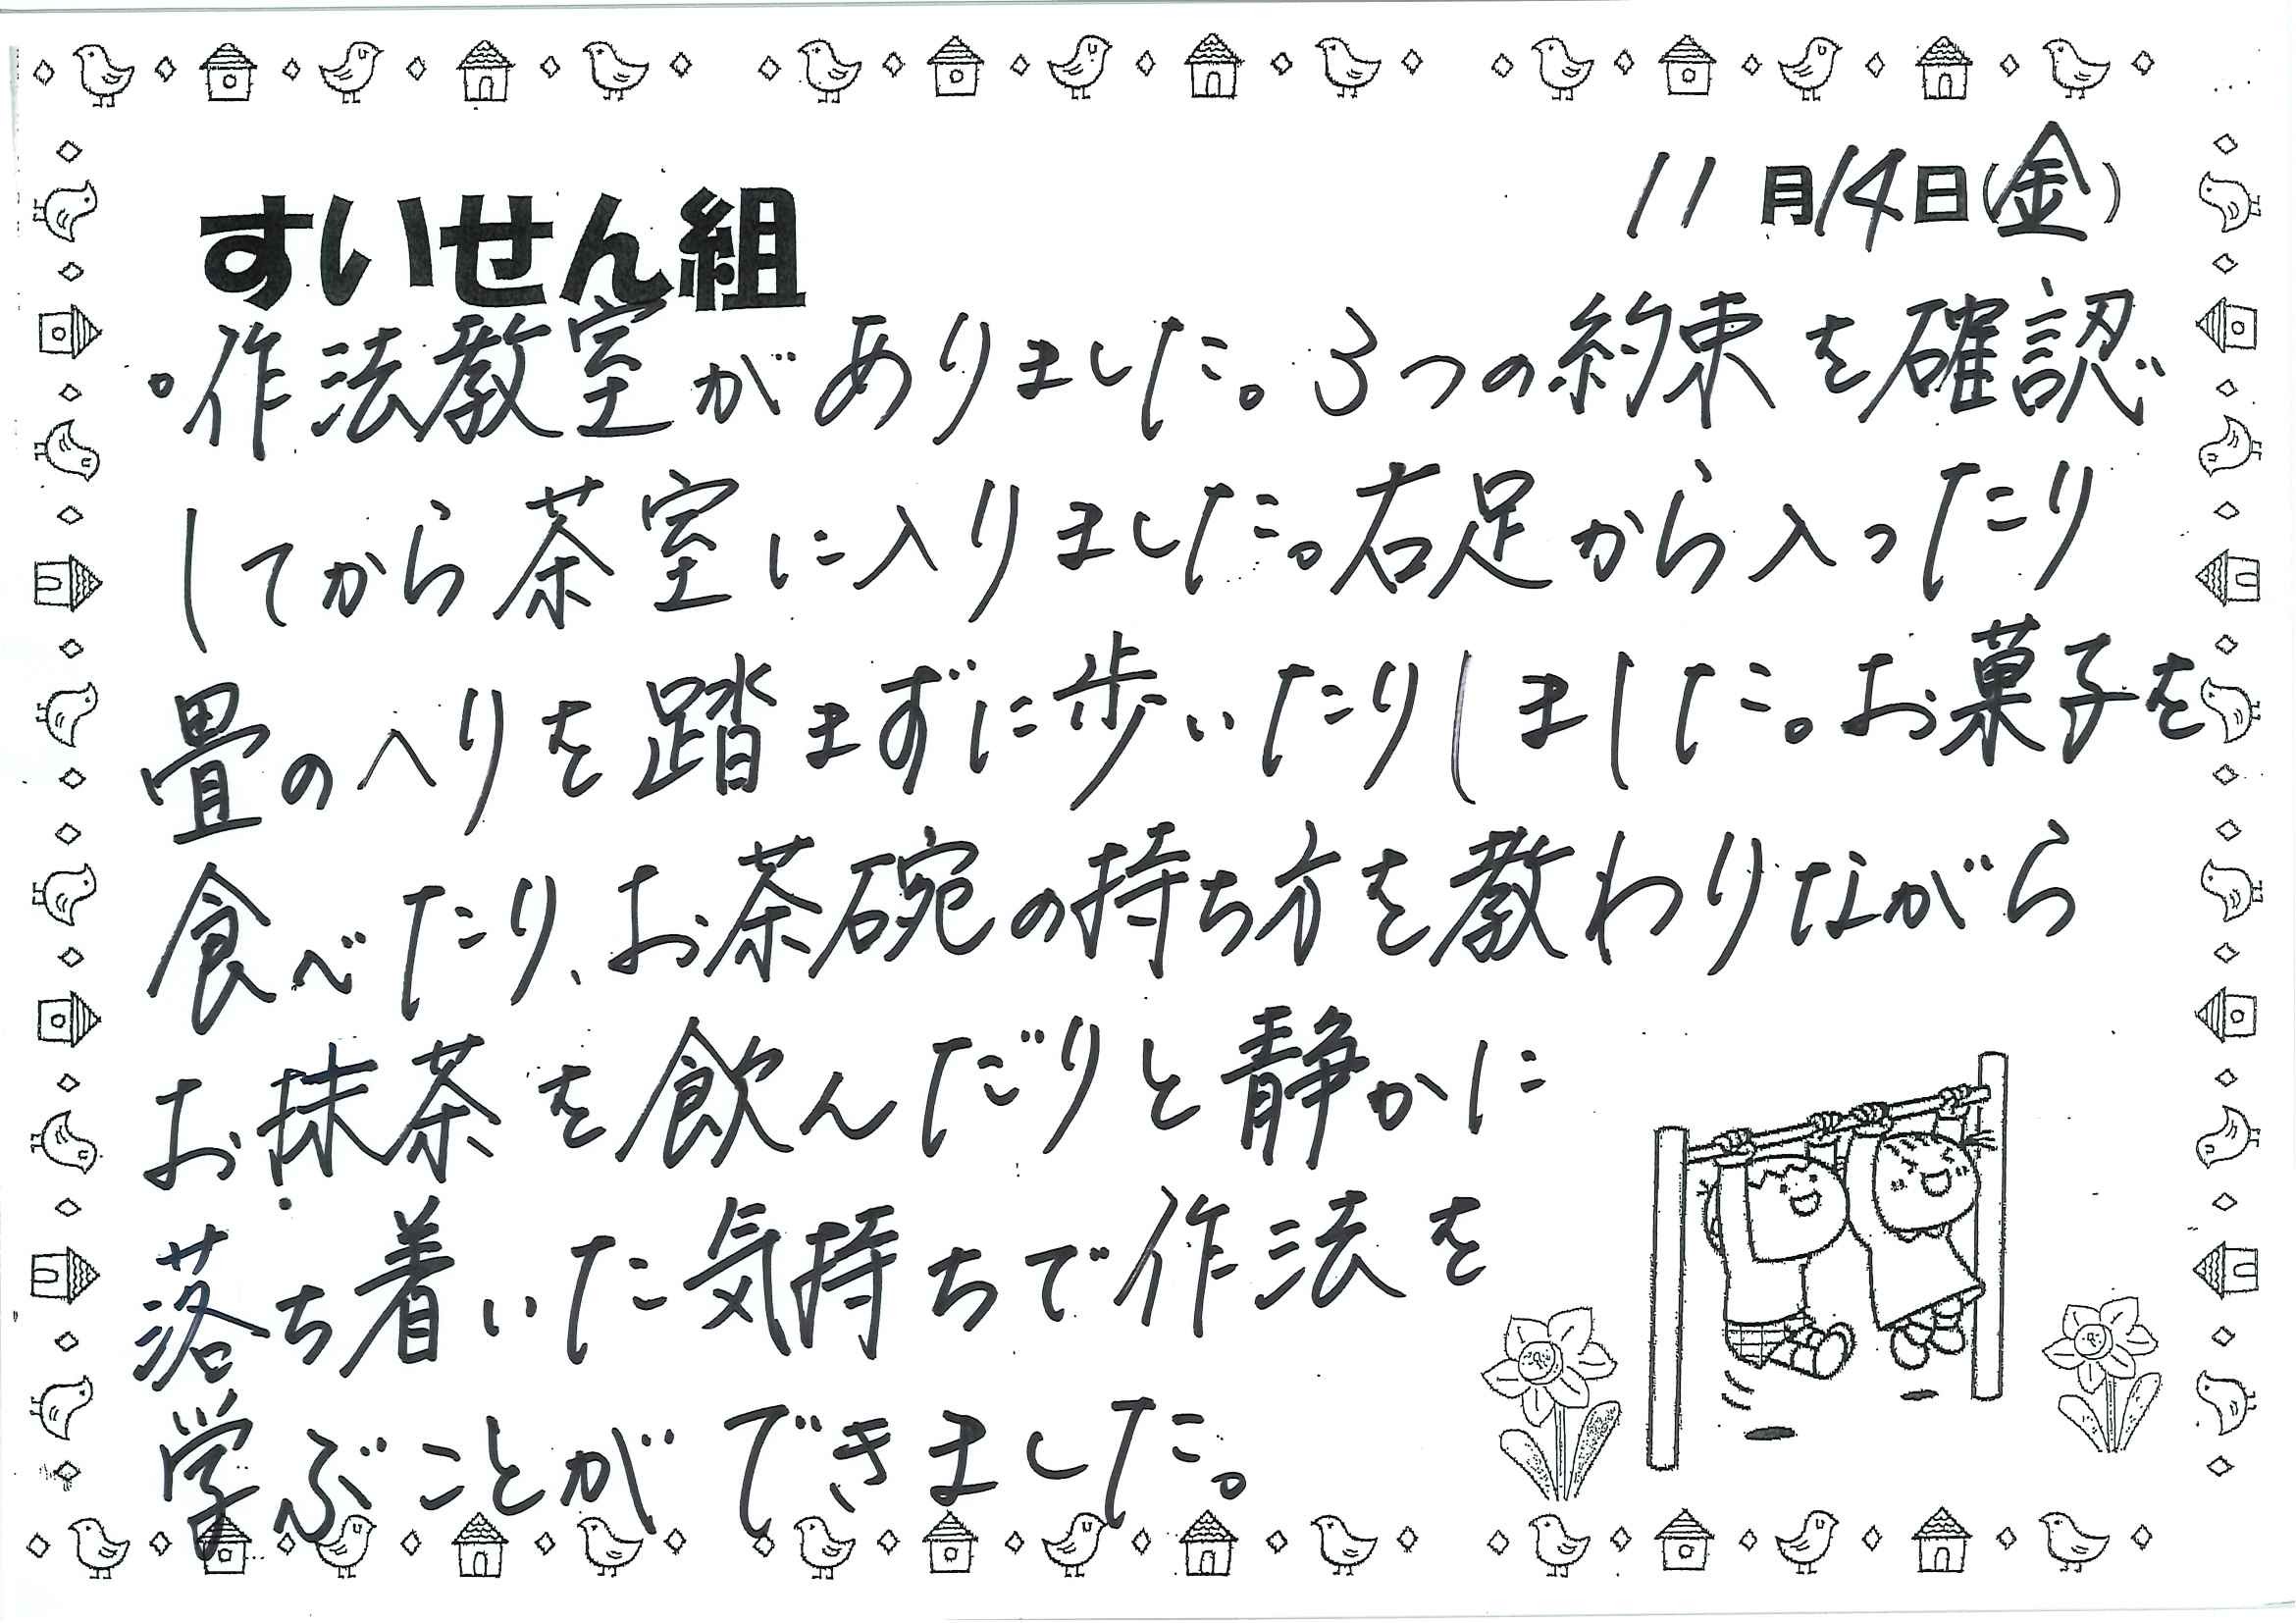 11月14日(金)
すいせん組
。作法教室がありました。3つの約束を確認
してから茶室に入りました。右足から入ったり
畳のへりを踏まずに歩いたりしました。お菓子を
食べたり、お茶碗の持ち方を教わりながら
お抹茶を飲んだりと静かに
落ち着いた気持ちで作法を
学ぶことができました。